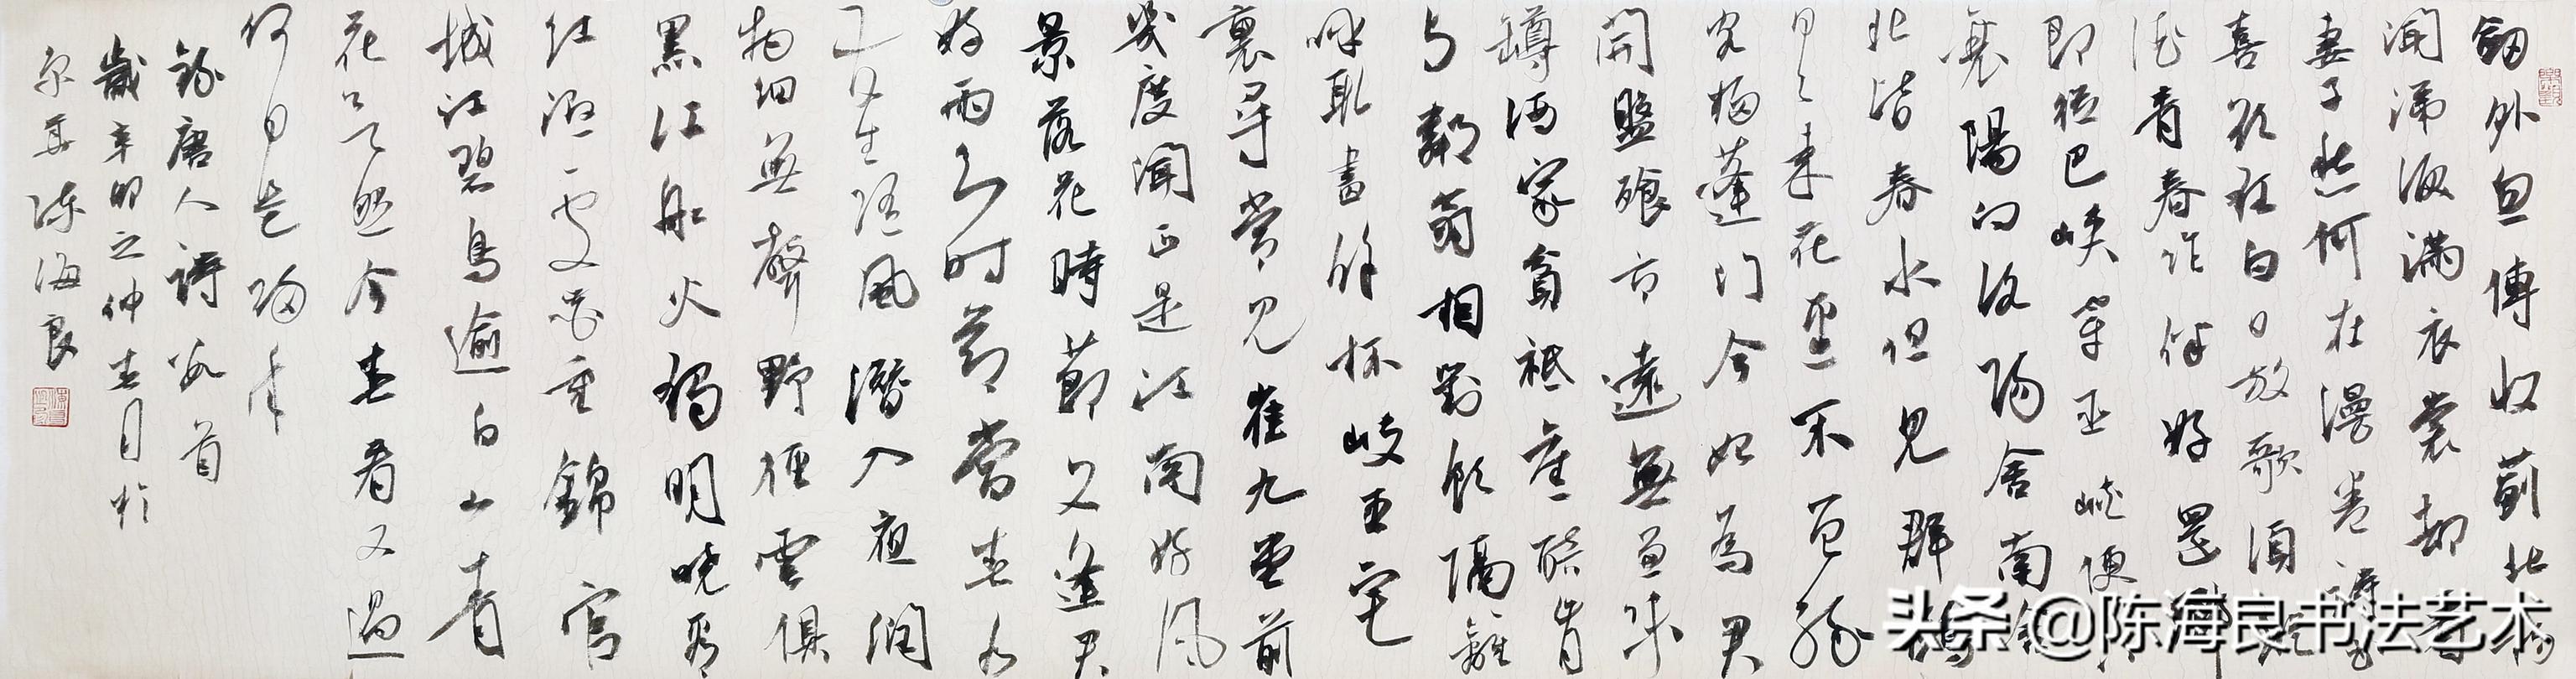 劔外忽傳收薊北初
聞涕淚滿衣裳却看
妻子愁何在漫卷詩書
喜欲狂白日放歌須縱
酒青春作伴好還鄉
即從巴峽穿巫峽便下
襄陽向洛陽舍南舍
北皆春水但見群鷗
日日來花徑不曾緣
客掃蓬門今始為君
開盤飧市遠無兼味
罇酒家貧祗舊醅肯
与鄰翁相對飲隔籬
呼取盡餘杯岐王宅
裏尋常見崔九堂前
幾度聞正是江南好風
景落花時節又逢君
好雨知时節當春乃
發生随風潛入夜潤
物細無聲野徑雲俱
黑江船火獨明曉看
红濕處花重錦官
城江碧鳥逾白山青
花欲然今春看又過
何日是歸年
錄唐人詩數首
歲辛卯之仲春月於
京華陳海良
头条 @陈海良书法艺术